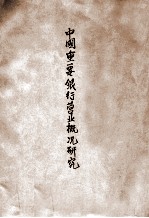 中國重要銀行營业概况研究